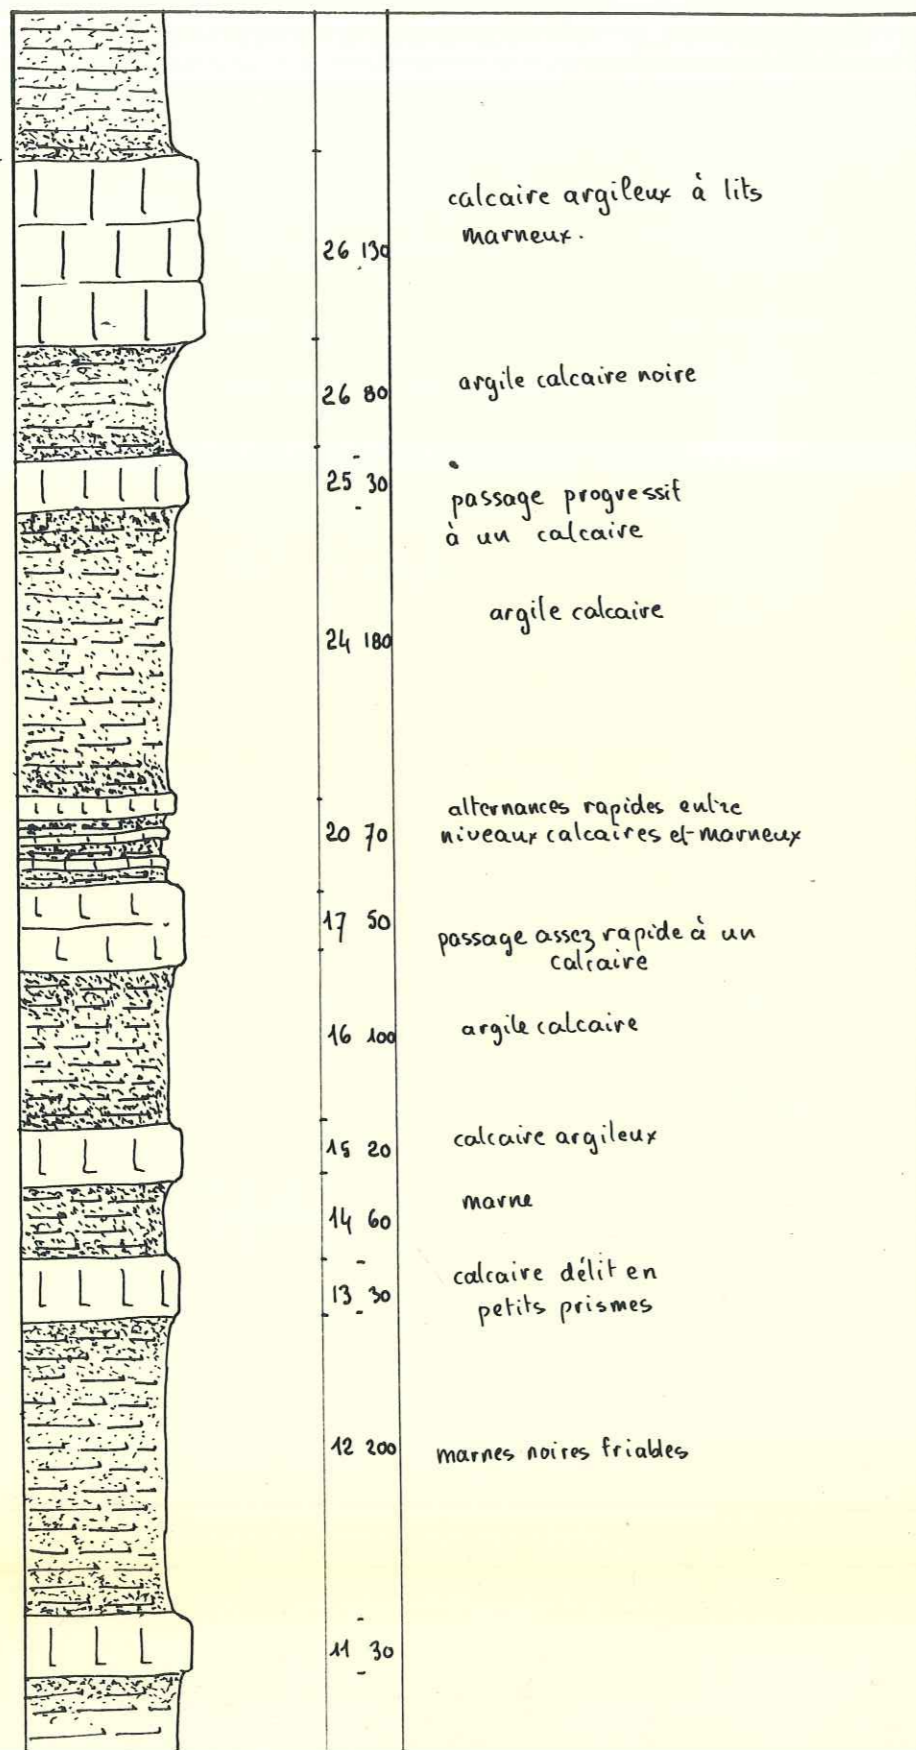 calcaire argileux à lits
26 130 marneux.
26 80 argile calcaire noire
25 30 passage progressif
à un calcaire
argile calcaire
24 180
alternances rapides entre
20 70 niveaux calcaires et marneux
17 50 passage assez rapide à un
calcaire
16 100 argile calcaire
15 20 calcaire argileux
14 60 marne
13 30 calcaire délit en
petits prismes
12 200 marnes noires friables
11 30